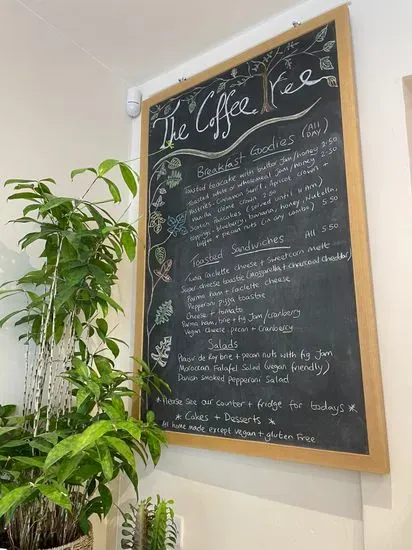 The Coffee Tree
Breakfast Goodies (All Day)
Toasted teacake with butter jam/honey 2.50
Toasted white or wholemeal jam/honey 2.50
Pastries - Cinnamon Swirl, Apricot crown +
Vanilla crème crown 2.50
Scotch Pancakes (served until 11 AM)
toppings - blueberry, banana, honey, Nutella,
toffee + pecan nuts (in any combo) 5.50
Toasted Sandwiches All 5.50
Tuna raclette cheese + Sweetcorn melt
Super cheese toastie (Mozzarella + charcoal cheddar)
Parma ham + raclette cheese
Pepperoni pizza toastie
Cheese + tomato
Parma ham, brie + fig Jam/cranberry
Vegan cheese, pecan + Cranberry
Salads
Flavor de Roy brie + pecan nuts with fig Jam
Moroccan Falafel Salad (vegan friendly)
Danish Smoked Pepperoni Salad
* Please see our counter + fridge for todays *
* Cakes + Desserts *
All home made except vegan + gluten Free